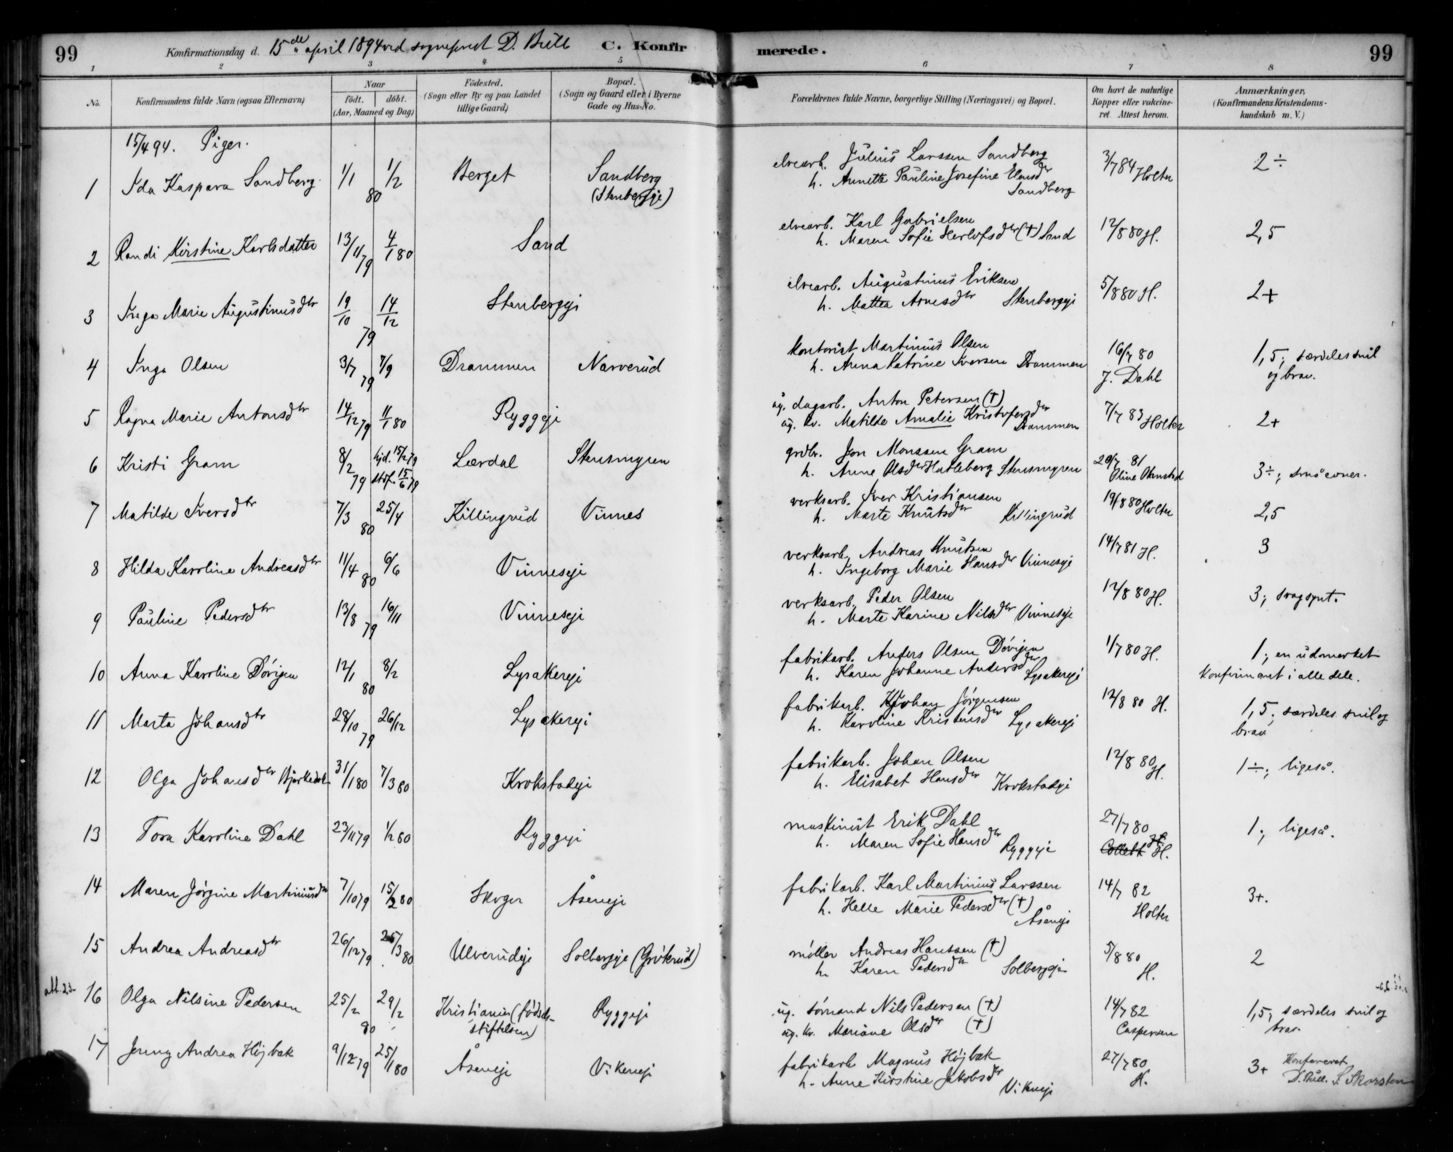 99
Konfirmationsdag d. 15de april 1894 ved sogneprest D. Bull
C. Konfir
merede.
99
1 2 3 4 5 6 7 8
No. Konfirmandens fulde Navn (ogsaa Efternavn) Naar født. døbt. (Aar, Maaned og Dag) Fødested. (Sogn eller By og paa Landet tillige Gaard) Bopæl. (Sogn og Gaard eller i Byerne Gade og Hus-No.
Forældrenes fulde Navne, borgerlige Stilling (Næringsvei) og Bopæl. Om havt de naturlige Kopper eller vakcineret. Attest herom. Anmærkninger. (Konfirmandens Kristendomskundskab m. V.)
15/4 94. Piger.
1 Ida Kaspara Sandberg 1/1 80 1/2 Berget Sandberg (Stenbergeje) elvearb. Julius Larssen Sandberg
h. Annette Pauline Josefine Hansdr Sandberg 3/7 84 Holter 2÷
2 Randi Kirstine Karlsdatter 13/11 79 4/1 80 Sand elvearb. Karl Gabrielsen
h. Maren Sofie Herlofsdr (†) Sand 12/8 80 H. 2,5
3 Inga Marie Augustinusdtr 19/10 79 14/12 Stenbergeje elvearb. Augustinus Eriksen
h. Mathea Arnesdtr Stenbergeje 5/8 80 H. 2+
4 Inga Olsen 3/7 79 7/9 Drammen Narverud kontorist Martinius Olsen
h. Anna Katrine Iversen Drammen 16/7 80 J. Dahl 1,5; særdeles snil og brav.
5 Ragna Marie Antonsdtr 14/12 79 11/1 80 Ryggeje ug. dagarb. Anton Petersen (†)
ug. kv. Matilde Amalie Kristofersdr Drammen 7/7 83 Holter 2+
6 Kristi Gram 8/2 79 hjd. 15/2 79 stf. 15/6 79 Lærdal Stensmyren grdbr. Jon Monssen Gram
h. Anne Olsdr Hatleberg Stensmyren 20/7 81 Oline Ohnstad 3÷; småevner.
7 Matilde Iversdtr 7/3 80 25/4 Killingrud Vinnes verksarb. Iver Kristiansen
h. Marte Knutsdtr Killingrud 19/8 80 Holter 2,5
8 Hilda Karoline Andreasdtr 11/4 80 6/6 Vinneseje verksarb. Andreas Knutsen
h. Ingeborg Marie Hansdr Vinneseje 14/7 81 H. 3
9 Pauline Pedersdtr 13/8 79 16/11 Vinneseje verksarb. Peder Olsen
h. Marte Karine Nilsdtr Vinneseje 12/8 80 H. 3;
10 Anna Karoline Døvigen 12/1 80 8/2 Lysakereje fabrikarb. Anders Olsen Døvigen
h. Karen Johanne Andersdr Lysakereje 1/7 80 H. 1; en udmerket konfirmant i alle dele.
11 Marta Johansdtr 28/10 79 26/12 Lysakereje fabrikarb. Johan Jørgensen
h. Karoline Kristensdr Lysakereje 12/8 80 H. 1,5; særdeles snil og brav
12 Olga Johansdtr 31/1 80 7/3 80 Krokstadeje fabrikarb. Johan Olsen
h. Elisabet Hansdtr Krokstadeje 12/8 80 H. 1÷; ligeså.
13 Tora Karoline Dahl 23/11 79 1/2 80 Ryggeje maskinist Erik Dahl
h. Maren Sofie Hansdtr Ryggeje 27/7 80 H. 1; ligeså.
14 Maren Jørgine Martiniusdtr 7/10 79 15/2 80 Skoger Åseneje fabrikarb. Karl Martinius Larssen
h. Helle Marie Pedersdtr (†) Åseneje 14/7 82 Holter 3+.
15 Andrea Andreasdtr 26/12 79 25/3 80 Ulverudeje Solbergeje (Grøterud) møller Andreas Hanssen (†)
h. Karen Pedersdtr Solbergeje 5/8 80 H. 2
16 Olga Nilsine Pedersen 25/2 80 29/2 Kristiania (fødselsstiftelsen) Ryggeje ug. sømand Nils Pedersen (†)
ug. kv. Mariane Olsdr (†) 14/7 82 Caspersen 1,5, særdeles snil og brav.
17 Jenny Andrea Højbak 9/12 79 25/1 80 Åseneje Vikeneje fabrikarb. Magnus Højbak
h. Anne Kirstine Jakobsdr Vikeneje 27/7 80 H. 3+ Konfereret
D. Bull. S. Skarsten